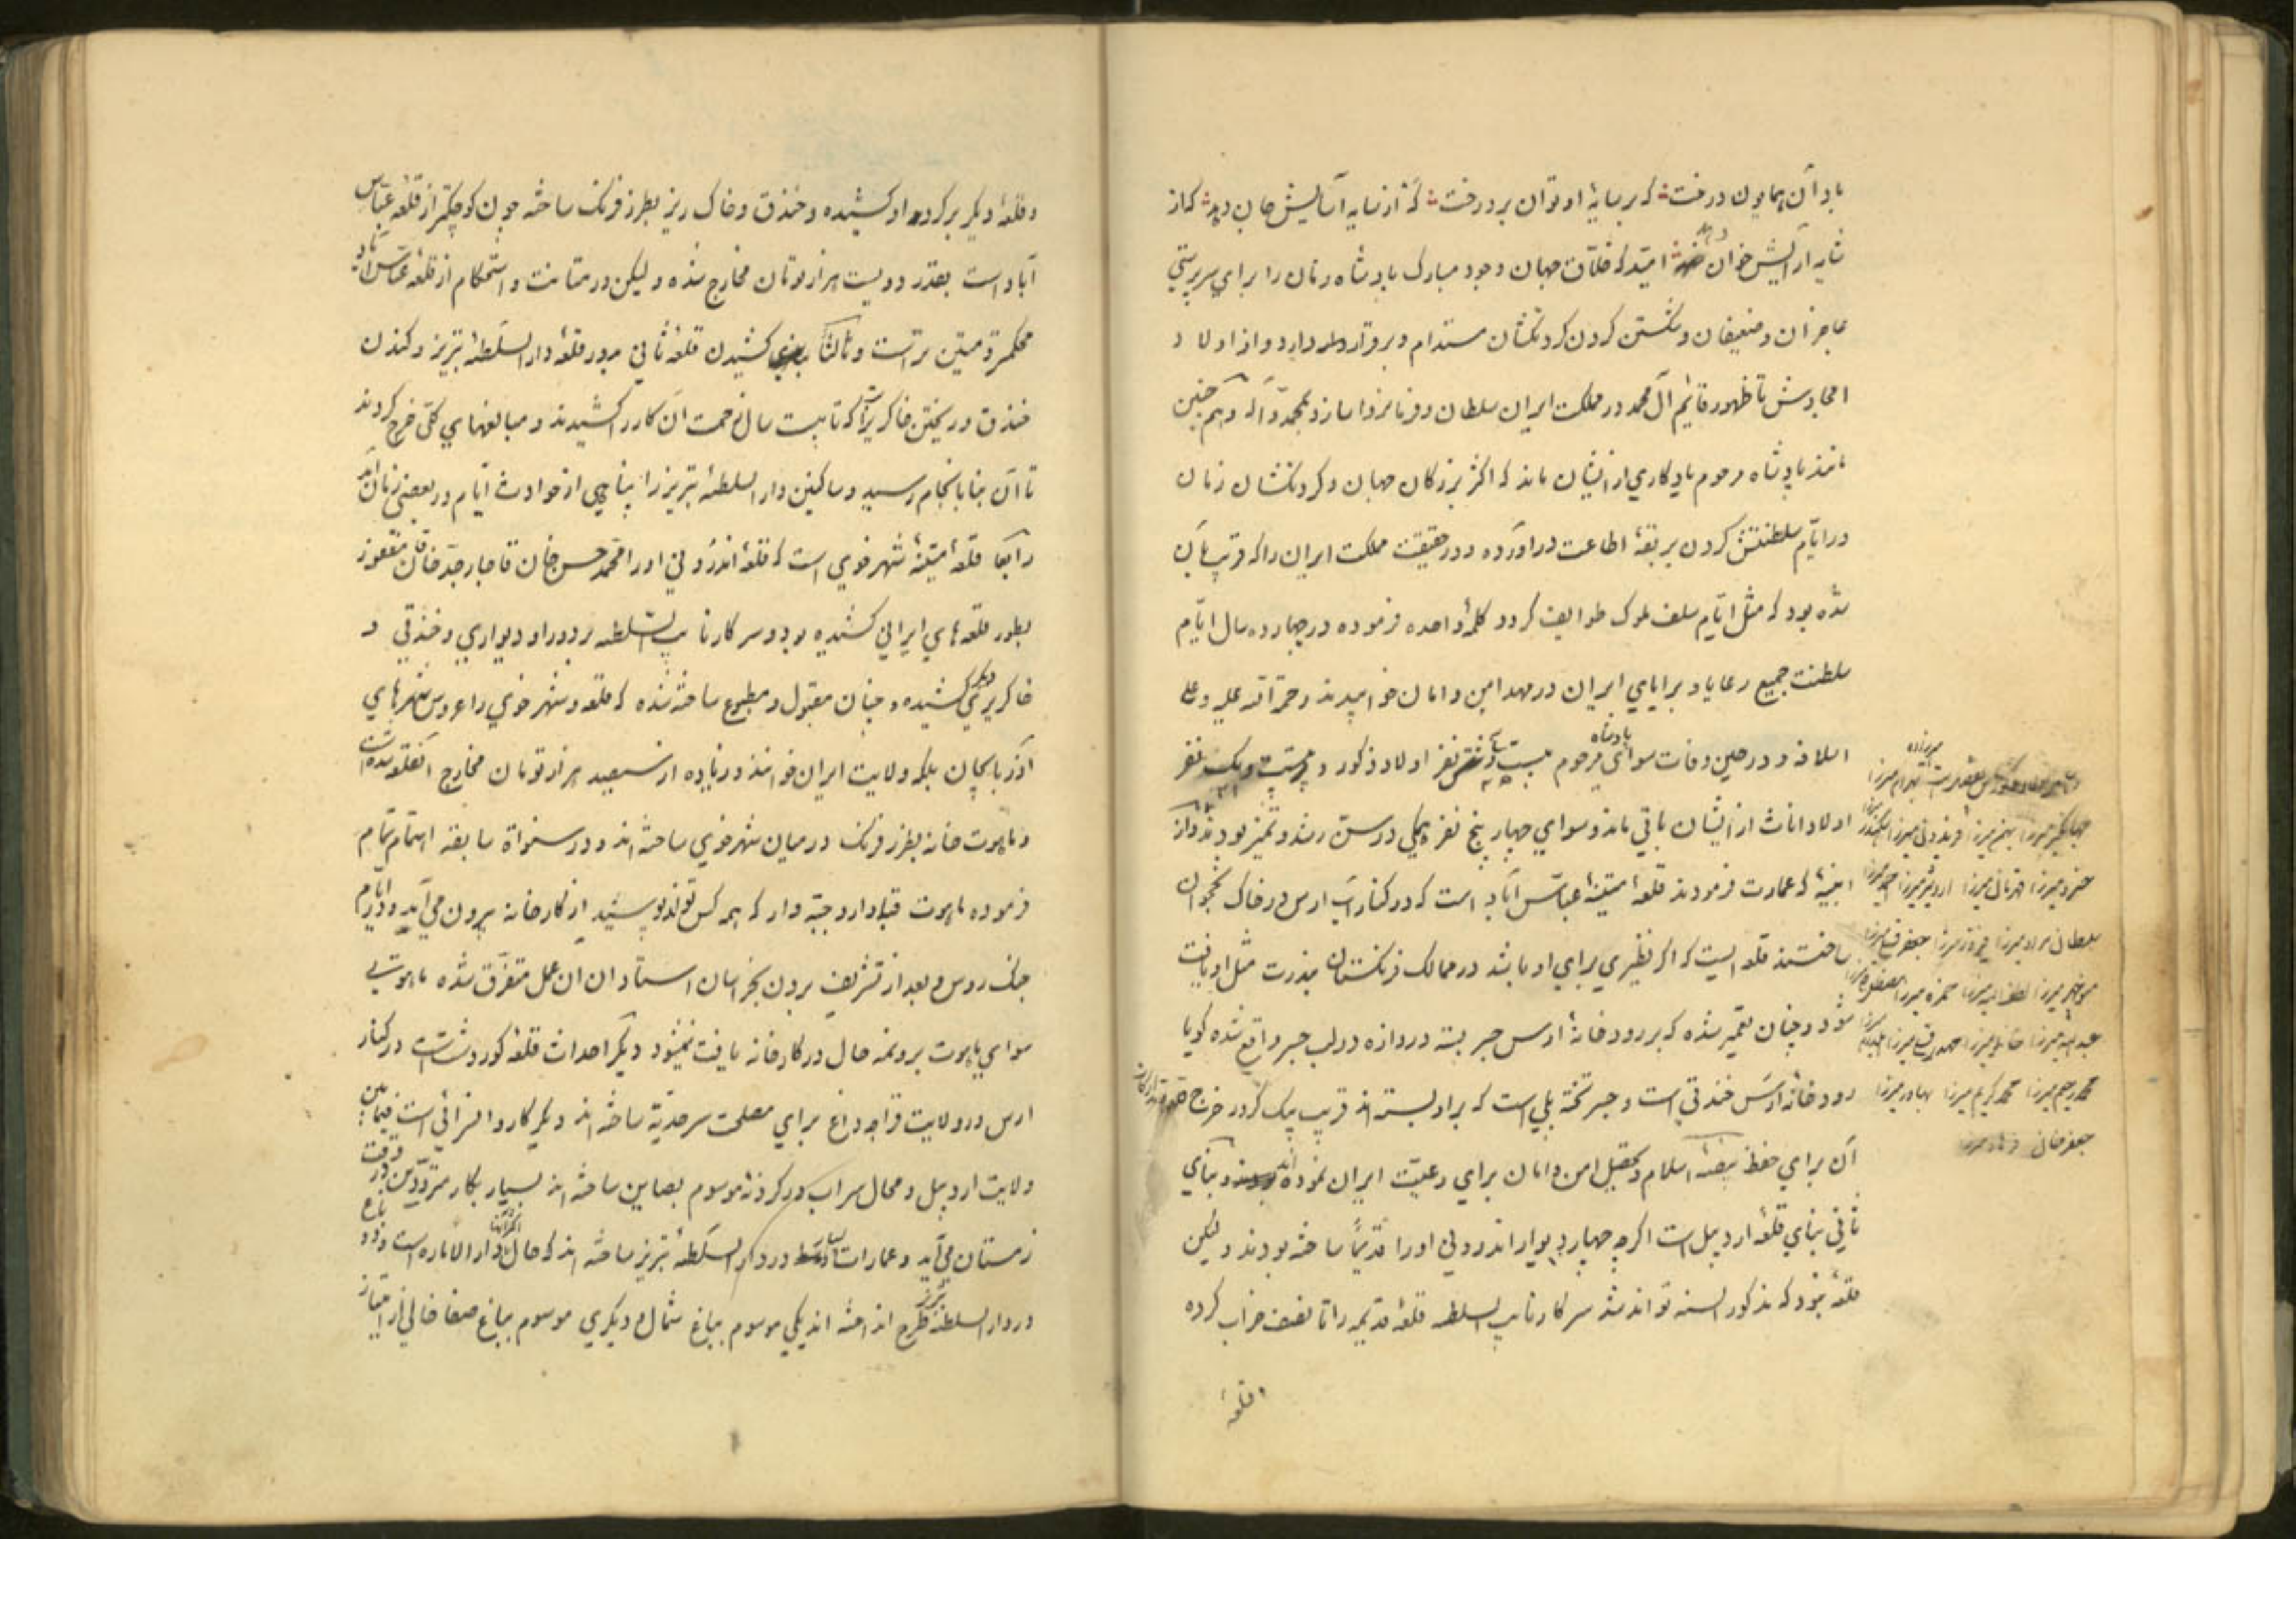 باد آن همایون درخت که بر سایهٔ او توان برد رخت که از سایه آسایش جان دهد که از
سایه آرایش خوان دهد امید که خلاق جهان وجود مبارک پادشاه زمان را برای سرپرستی
عاجزان و ضعیفان و شکستن گردن گردنکشان مستدام و برقرار دارد و از اولاد
امجادش تا ظهور قائم آل محمد در مملکت ایران سلطان و فرمانروا سازد بمحمد و آله و هم چنین
مانند پادشاه مرحوم یادگاری از ایشان ماند که اکثر بزرگان جهان و گردنکشان زمان
در ایام سلطنتش گردن بربقهٔ اطاعت در آورده و در حقیقت مملکت ایران را که قریب بآن
شده بود که مثل ایام سلف ملوک طوایف گردد کلمهٔ واحده فرموده در چهارده سال ایام
سلطنت جمیع رعایا و برایای ایران در مهد امن و امان خوابیدند رحمة الله علیه و علی
اسلافه و در حین وفات سوای پادشاه مرحوم بیست و نفر اولاد ذکور و بیست و یک نفر
اولاد اناث از ایشان باقی ماند و سوای چهار پنج نفر همگی در سن رشد و تمیز بودند و از
ابنیهٔ که عمارت فرمودند قلعهٔ متینهٔ عباس آباد است که در کنار آب ارس در خاک نخجوان
ساختند قلعه ایست که اگر نظیری برای او باشد در ممالک فرنگستان بندرت مثل او یافت
شود و چنان تعمیر شده که بر رودخانهٔ ارس جسر بسته دروازه در لب جسر واقع شده گویا
رودخانهٔ ارس خندقی است و جسر تخته پلی است که بر او بسته اند قریب یک کرور خرج
آن برای حفظ بیضهٔ اسلام و تحصیل امن و امان برای رعیت ایران نموده اند و بنای
ثانی بنای قلعهٔ اردبیل است اگرچه چهار دیوار اندرونی او را قدیما ساخته بودند و لیکن
قلعهٔ نبود که مذکور السنه تواند شد سرکار نایب السلطنه قلعهٔ قدیمه را تا نصف خراب کرده
و قلعهٔ
بهرام میرزا
جهانگیر میرزا بهمن میرزا فریدون میرزا اسکندر میرزا
خسرو میرزا قهرمان میرزا اردشیر میرزا احمد میرزا
سلطان مراد میرزا فیروز میرزا جعفر قلی میرزا
منوچهر میرزا لطف الله میرزا حمزه میرزا مصطفی قلی میرزا
عبدالله میرزا خانلر میرزا مهدی قلی میرزا
محمد رحیم میرزا محمد کریم میرزا بهادر میرزا
جعفر خان
و قلعهٔ دیگر بر گرد او کشیده و خندق و خاک ریز بطرز فرنگ ساخته چون کوچکتر از قلعه عباس
آباد است بقدر دویست هزار تومان مخارج شده و لیکن در متانت و استحکام از قلعهٔ عباس آباد
محکمتر و متین تر است و ثالثا کشیدن قلعهٔ ثانی بر دور قلعهٔ دار السلطنهٔ تبریز و کندن
خندق و ریختن خاکریز که تا بیست سال زحمت آن کار را کشیدند و مبالغهای کلی خرج کردند
تا آن بنا بانجام رسید و ساکنین دار السلطنهٔ تبریز را پناهی از حوادث ایام در بعضی زمان آمد
رابعا قلعهٔ متینهٔ شهر خوی است که قلعهٔ اندرونی او را محمد حسن خان قاجار جد خاقان مغفور
بطور قلعه های ایرانی کشیده بود و سرکار نایب السلطنه بر دور او دیواری و خندقی و
خاکریزی دیگر کشیده و چنان مقبول و مطبوع ساخته شده که قلعه و شهر خوی را عروس شهرهای
آذربایجان بلکه ولایت ایران خوانند و زیاده از سیصد هزار تومان مخارج آن قلعه شده است
و ماهوت خانه بطرز فرنگ در میان شهر خوی ساخته اند و در سنوات سابقه اهتمام تمام
فرموده ماهوت قبادار و جبه دار که همه کس تواند پوشید از کارخانه بیرون می آید و در ایام
جنگ روس و بعد از تشریف بردن بخراسان استادان آن عمل متفرق شده ماهوتی
سوای ماهوت بروتمه حال در کارخانه یافت نمیشود دیگر احداث قلعهٔ کوردشت است در کنار
ارس در ولایت قراجه داغ برای مصلحت سرحدیه ساخته اند و دیگر کاروانسرائی است فیما بین
ولایت اردبیل و محال سراب در گردنهٔ موسوم بصاین ساخته اند بسیار بکار مترددین در وقت
زمستان می آید و عمارات در دار السلطنهٔ تبریز ساخته اند که حال دار الاماره است و دو باغ
در دار السلطنهٔ تبریز طرح انداخته اند یکی موسوم بباغ شمال و دیگری موسوم بباغ صفا خالی از امتیاز